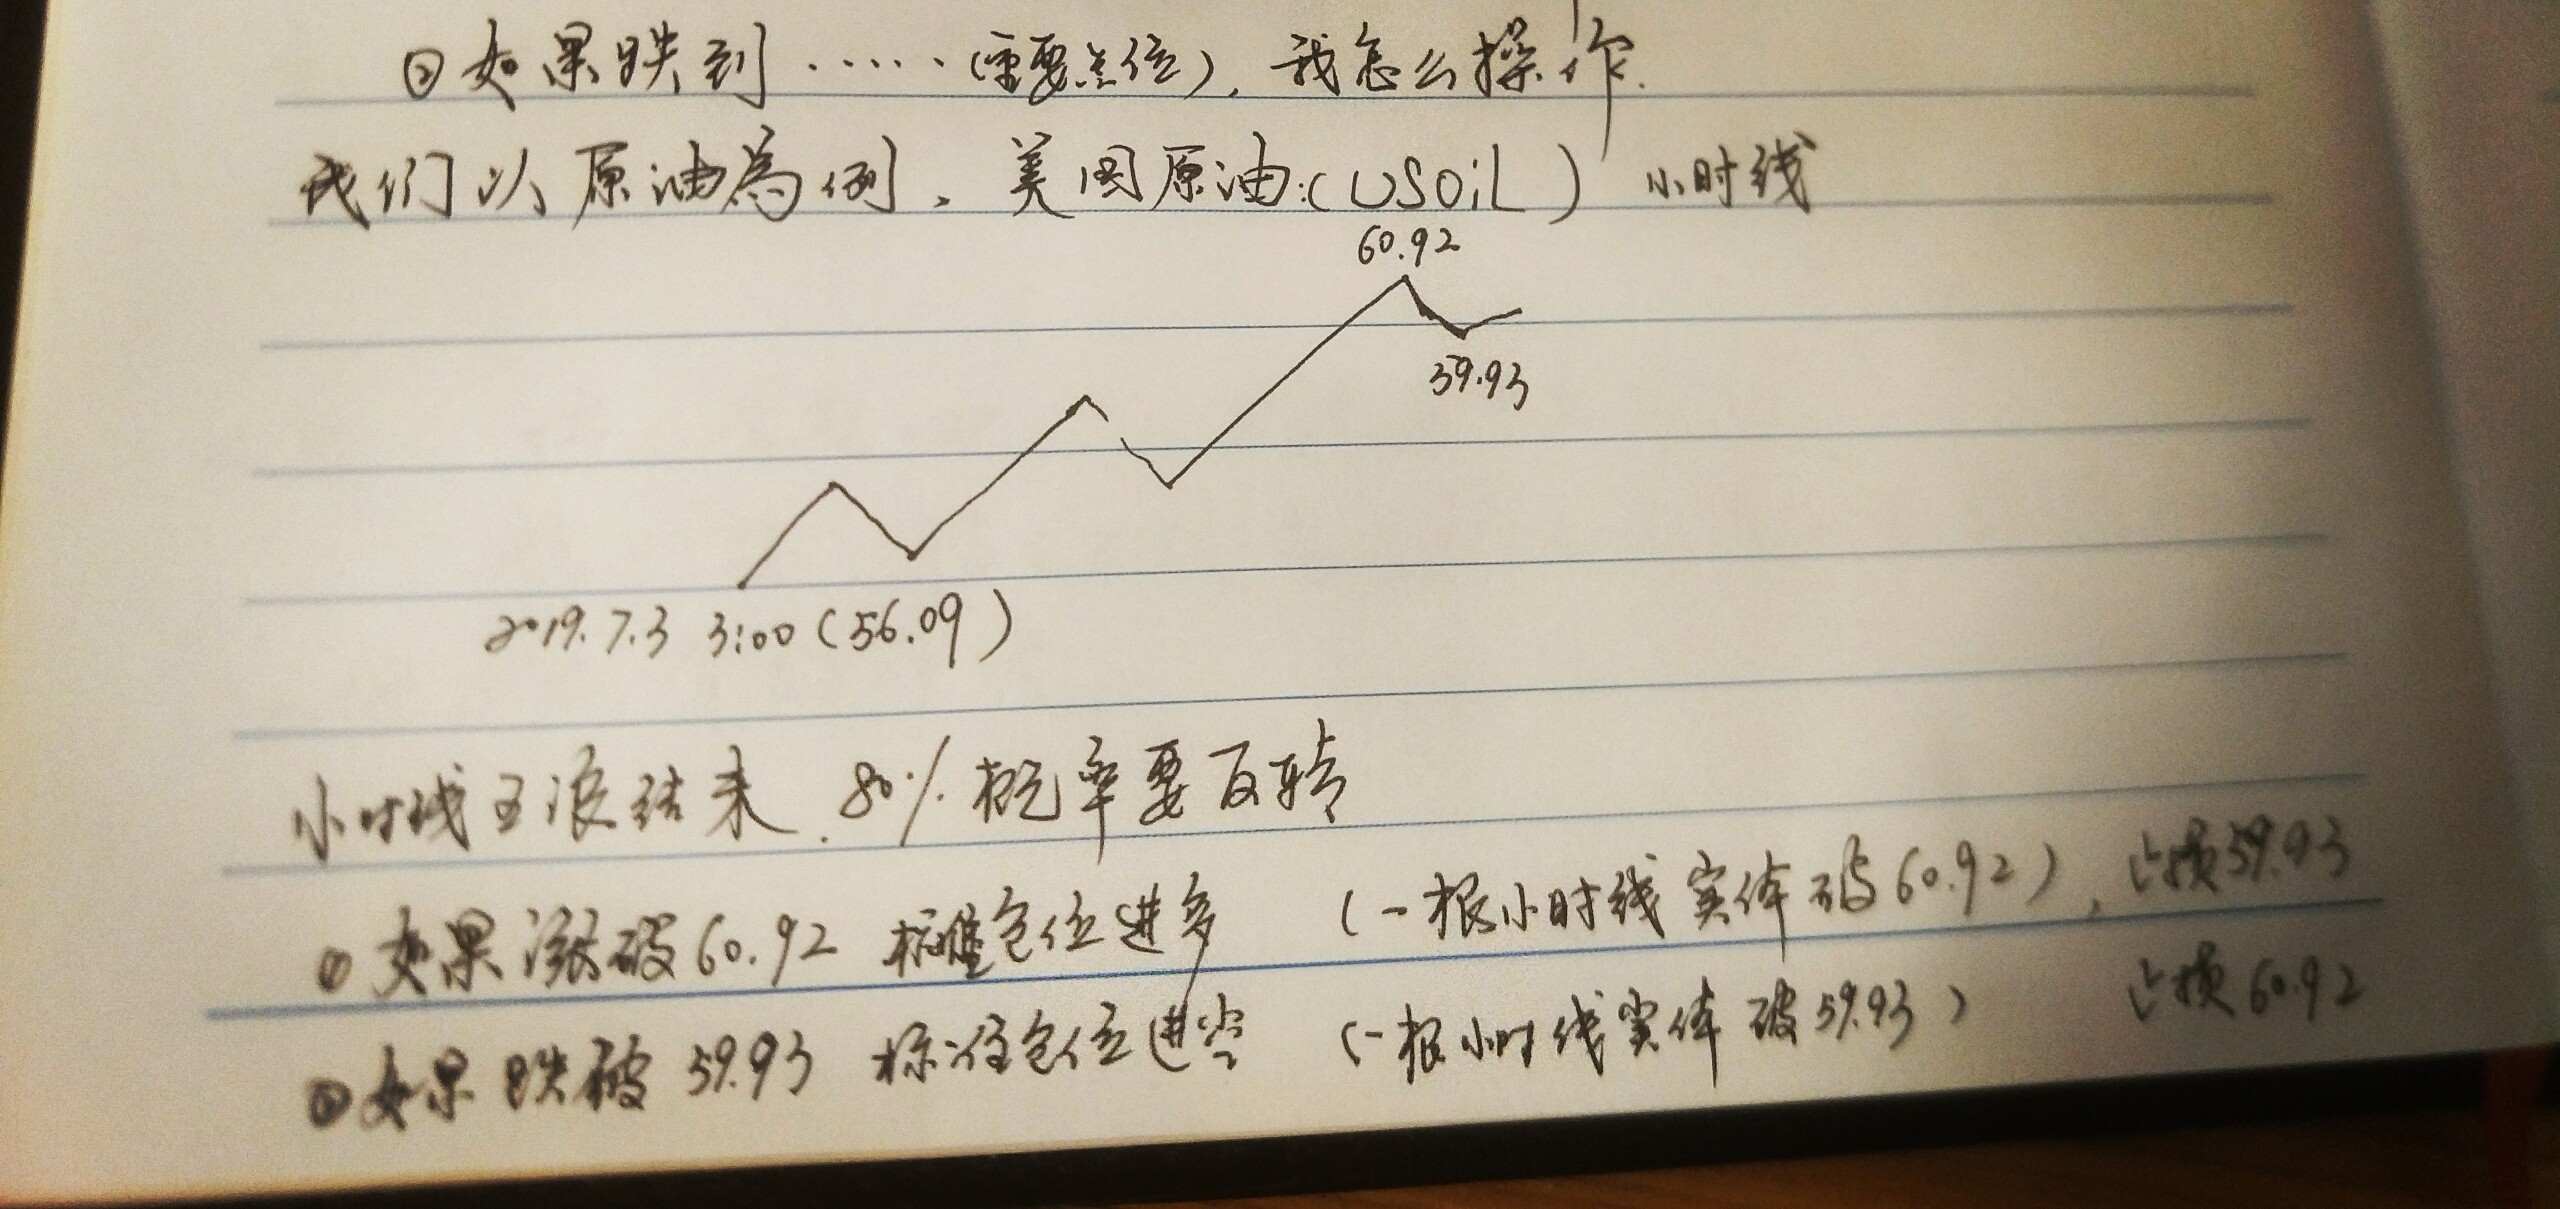 ②如果跌到……(重要点位),我怎么操作.
我们以原油为例,美国原油:(USOiL) 小时线
60.92
59.93
2019.7.3 3:00(56.09)
小时线五浪结束.80%概率要反转
①如果涨破60.92 标准仓位进多 (一根小时线实体破60.92),止损59.93
②如果跌破59.93 标准仓位进空 (一根小时线实体破59.93) 止损60.92